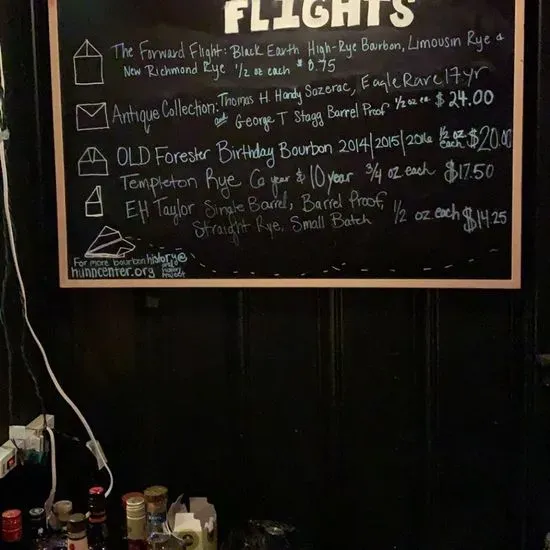 FLIGHTS
The Forward Flight: Black Earth High-Rye Bourbon, Limousin Rye &
New Richmond Rye 1/2 oz each $ 8.75
Antique Collection: Thomas H. Handy Sazerac, Eagle Rare 17 yr
and George T Stagg Barrel Proof 1/2 oz ea $24.00
OLD Forester Birthday Bourbon 2014/2015/2016 1/2 oz each $20.00
Templeton Rye 6 year & 10 year 3/4 oz each $17.50
EH Taylor Single Barrel, Barrel Proof,
Straight Rye, Small Batch 1/2 oz each $14.25
For more bourbon history @
hunncenter.org